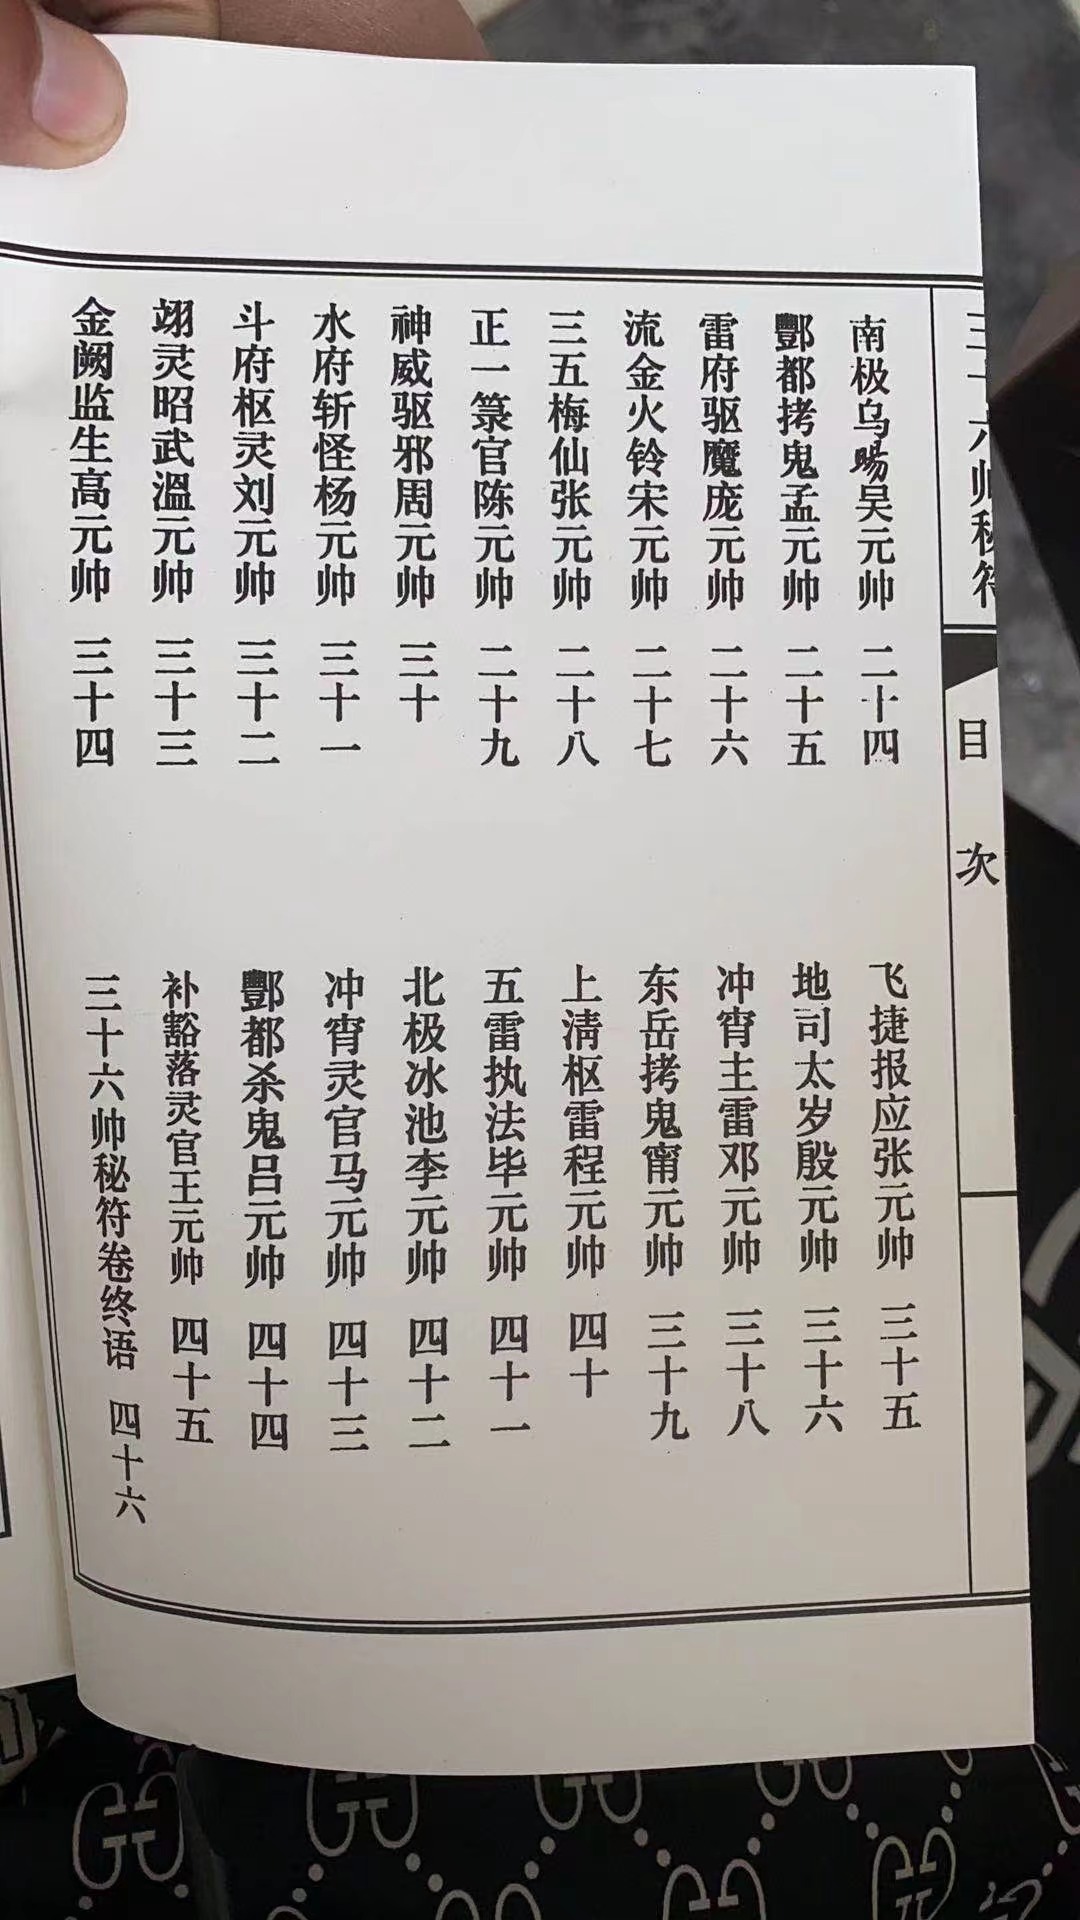 三十六帅秘符
目次
南极乌暘吴元帅 二十四
酆都拷鬼孟元帅 二十五
雷府驱魔庞元帅 二十六
流金火铃宋元帅 二十七
三五梅仙张元帅 二十八
正一箓官陈元帅 二十九
神威驱邪周元帅 三十
水府斩怪杨元帅 三十一
斗府枢灵刘元帅 三十二
翊灵昭武温元帅 三十三
金阙监生高元帅 三十四
飞捷报应张元帅 三十五
地司太岁殷元帅 三十六
冲宵主雷邓元帅 三十八
东岳拷鬼甯元帅 三十九
上清枢雷程元帅 四十
五雷执法毕元帅 四十一
北极冰池李元帅 四十二
冲宵灵官马元帅 四十三
酆都杀鬼吕元帅 四十四
补豁落灵官王元帅 四十五
三十六帅秘符卷终语 四十六